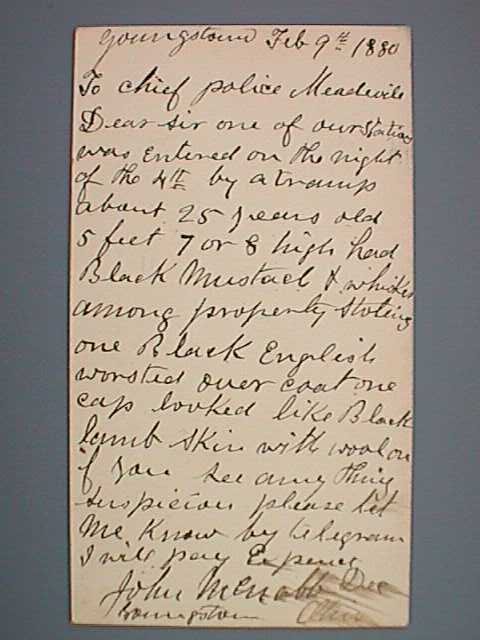 Youngstown Feb 9th 1880
To chief police Meadvile
Dear sir one of our Station
was Entered on the night
of the 4th by a tramp
about 25 years old
5 feet 7 or 8 high had
Black Mustach & whisker
among property Stoling
one Black English
worsted over coat one
cap looked like Black
lamb skin with wool on
if you see any thing
suspicion please let
me Know by telegram
I will pay Expence
John McNabb Dec
Youngstown Ohio